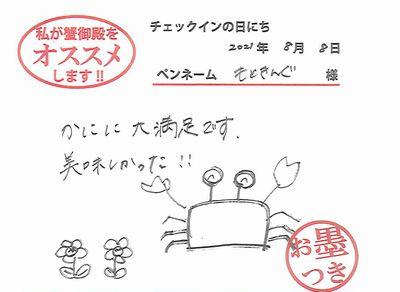 私が蟹御殿を
オススメ
します!!
チェックインの日にち
2021年 8月 8日
ペンネーム もときんぐ 様
かにに大満足です.
美味しかった!!
お墨
つき